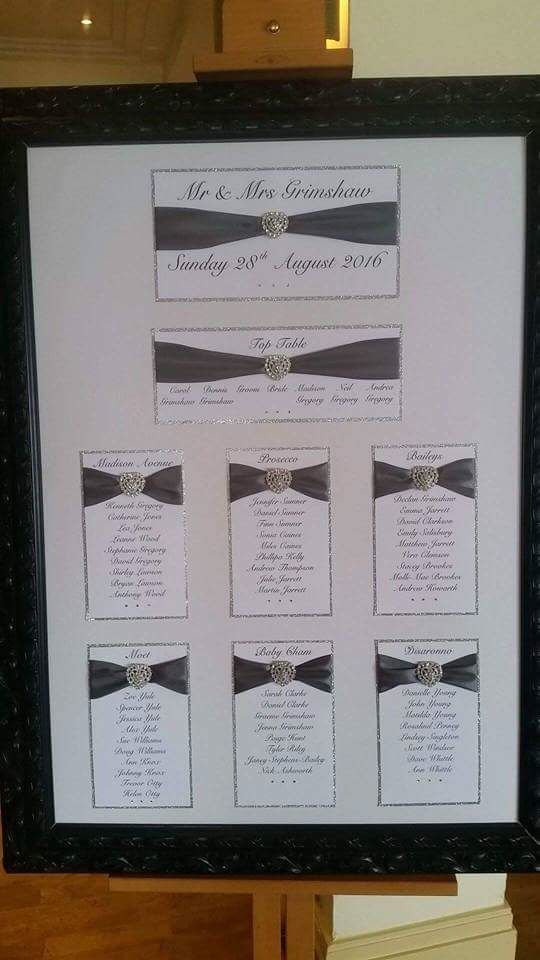 Mr & Mrs Grimshaw
Sunday 28th August 2016
Top Table
Carol Dennis Groom Bride Madison Neil Andrea
Grimshaw Grimshaw Gregory Gregory Gregory
Madison Avenue
Kenneth Gregory
Catherine Jones
Lea Jones
Leanne Wood
Stephanie Gregory
David Gregory
Shirley Lawson
Bryan Lawson
Anthony Wood
Prosecco
Jennifer Sumner
Daniel Sumner
Finn Sumner
Sonia Caines
Miles Caines
Phillipa Kelly
Andrew Thompson
Julie Jarrett
Martin Jarrett
Baileys
Declan Grimshaw
Emma Jarrett
David Clarkson
Emily Salisbury
Matthew Jarrett
Vera
Stacey Brookes
Molli-Mae Brookes
Andrew Howarth
Moet
Zoe Yule
Spencer Yule
Jessica Yule
Alex Yule
Sue Williams
Doug Williams
Ann Knox
Johnny Knox
Trevor Otty
Helen Otty
Baby Cham
Sarah Clarke
Daniel Clarke
Graeme Grimshaw
Jenna Grimshaw
Paige Hunt
Tyler Riley
Janey Stephens-Bailey
Nick Ashworth
Disaronno
Danielle Young
John Young
Matilda Young
Rosalind Penney
Lindsey Singleton
Scott Windsor
Dave Whittle
Ann Whittle